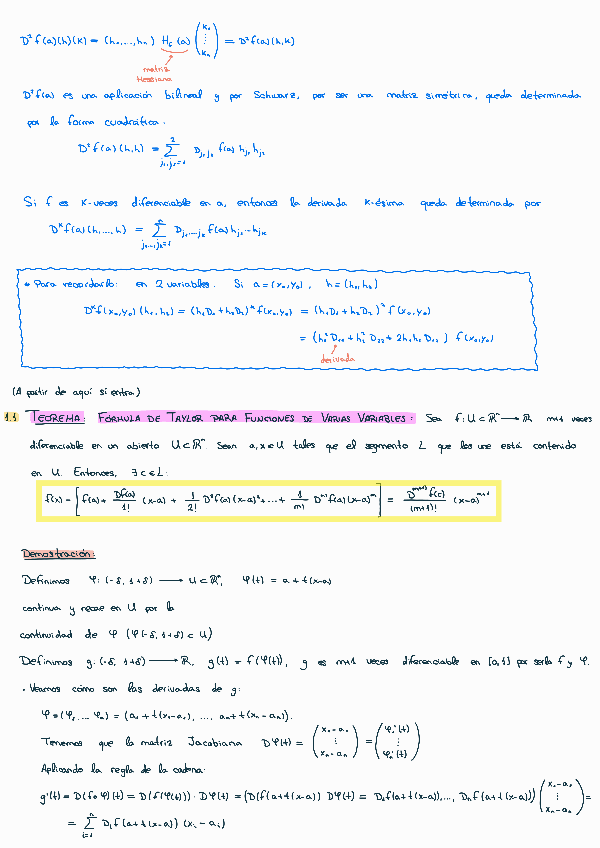 D²f(a)(h)(k) = (h₁,...,hₙ) H_f(a) (k₁ ⋮ kₙ) = D²f(a)(h,k)
matriz
Hessiana
D²f(a) es una aplicación bilineal y por Schwarz, por ser una matriz simétrica, queda determinada
por la forma cuadrática.
D²f(a)(h,h) = Σ_{j₁,j₂=1}^{2} D_{j₁j₂} f(a) h_{j₁} h_{j₂}
Si f es k-veces diferenciable en a, entonces la derivada k-ésima queda determinada por
D^k f(a)(h,...,h) = Σ_{j₁...jₖ=1}^{n} D_{j₁...jₖ} f(a) h_{j₁}...h_{jₖ}
* Para recordarlo: en 2 variables. Si a=(x₀,y₀), h=(h₁,h₂)
D^k f(x₀,y₀)(h₁,h₂) = (h₁D₁+h₂D₂)^k f(x₀,y₀) = (h₁D₁+h₂D₂)² f(x₀,y₀)
= (h₁² D₁₁ + h₂² D₂₂ + 2h₁h₂ D₁₂) f(x₀,y₀)
derivada
(A partir de aquí sí entra)
1.1 TEOREMA: FÓRMULA DE TAYLOR PARA FUNCIONES DE VARIAS VARIABLES: Sea f: U⊂ℝⁿ → ℝ m+1 veces
diferenciable en un abierto U⊂ℝⁿ. Sean a,x∈U tales que el segmento L que los une está contenido
en U. Entonces, ∃c∈L:
f(x) - [f(a) + Df(a)/1! (x-a) + 1/2! D²f(a)(x-a)² + ... + 1/m! D^m f(a)(x-a)^m] = D^{m+1}f(c)/(m+1)! (x-a)^{m+1}
Demostración:
Definimos φ: (-δ, 1+δ) → U⊂ℝⁿ, φ(t) = a + t(x-a)
continua y recae en U por la
continuidad de φ (φ(-δ, 1+δ) ⊂ U)
Definimos g: (-δ, 1+δ) → ℝ, g(t) = f(φ(t)), g es m+1 veces diferenciable en [0,1] por serla f y φ.
· Veamos cómo son las derivadas de g:
φ = (φ₁,...,φₙ) = (a₁ + t(x₁-a₁), ..., aₙ + t(xₙ-aₙ)).
Tenemos que la matriz Jacobiana Dφ(t) = (x₁-a₁ ⋮ xₙ-aₙ) = (φ₁'(t) ⋮ φₙ'(t))
Aplicando la regla de la cadena:
g'(t) = D(f∘φ)(t) = D(f(φ(t)))·Dφ(t) = (D(f(a+t(x-a))) Dφ(t) = D₁f(a+t(x-a)),..., Dₙf(a+t(x-a))) (x₁-a₁ ⋮ xₙ-aₙ) =
= Σ_{i=1}^{n} Dᵢf(a+t(x-a)) (xᵢ-aᵢ)